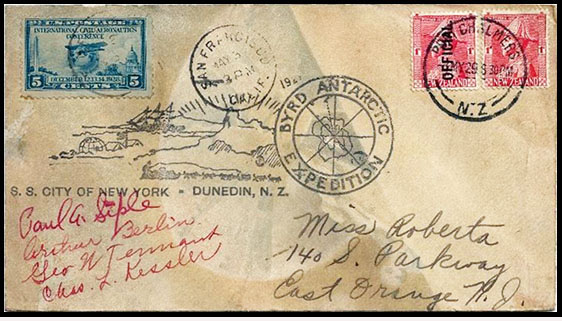 U.S. POSTAGE
INTERNATIONAL CIVIL AERONAUTICS
CONFERENCE
DECEMBER 12, 13, 14, 1928
5 CENTS 5
SAN FRANCISCO
CALIF.
PORT CHALMERS
29
N.Z.
OFFICIAL
NEW ZEALAND
NEW ZEALAND
BYRD ANTARCTIC
EXPEDITION
S. S. CITY OF NEW YORK - DUNEDIN, N. Z.
Paul A. Siple
Arthur Berlin
Geo W Tennant
Chas. L. Kessler
Miss Roberta
140 S. Parkway
East Orange N.J.